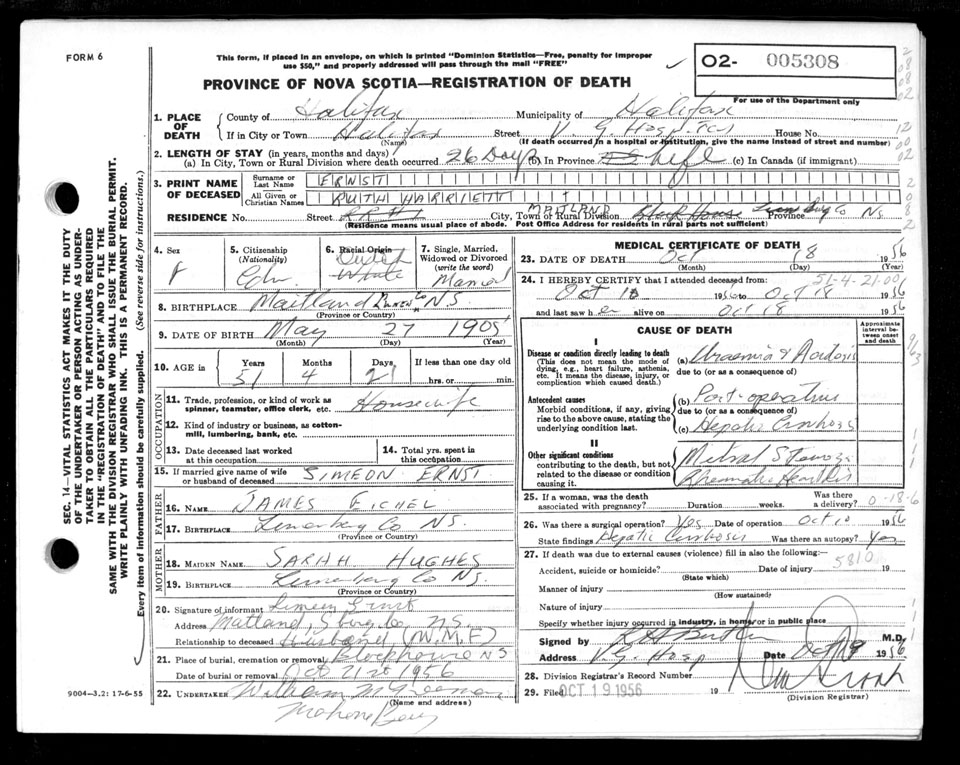 FORM 6
This form, if placed in an envelope, on which is printed "Dominion Statistics—Free, penalty for improper
use $50," and properly addressed will pass through the mail "FREE"
PROVINCE OF NOVA SCOTIA—REGISTRATION OF DEATH
02- 005308
For use of the Department only
1. PLACE OF DEATH
County of Halifax Municipality of Halifax
If in City or Town Halifax Street V. G. Hospital House No.
(Name) (If death occurred in a hospital or institution, give the name instead of street and number)
2. LENGTH OF STAY (in years, months and days)
(a) In City, Town or Rural Division where death occurred 26 Days (b) In Province life (c) In Canada (if immigrant)
3. PRINT NAME OF DECEASED
Surname or Last Name ERNST
All Given or Christian Names RUTH HARRIETT
RESIDENCE No. Street RR#1 City, Town or Rural Division MAITLAND Block House Lunenburg Co Province NS
(Residence means usual place of abode. Post Office Address for residents in rural parts not sufficient)
4. Sex F
5. Citizenship (Nationality) Cdn
6. Racial Origin Dutch White
7. Single, Married, Widowed or Divorced (write the word) Married
8. BIRTHPLACE Maitland Lunen Co NS
(Province or Country)
9. DATE OF BIRTH May 27 1905
(Month) (Day) (Year)
10. AGE in Years 51 Months 4 Days 21 If less than one day old hrs. or min.
OCCUPATION
11. Trade, profession, or kind of work as spinner, teamster, office clerk, etc. Housewife
12. Kind of industry or business, as cotton-mill, lumbering, bank, etc.
13. Date deceased last worked at this occupation
14. Total yrs. spent in this occupation
15. If married give name of wife or husband of deceased SIMEON ERNST
FATHER
16. NAME JAMES EICHEL
17. BIRTHPLACE Lunenburg Co NS.
(Province or Country)
MOTHER
18. MAIDEN NAME SARAH HUGHES
19. BIRTHPLACE Lunenburg Co NS.
(Province or Country)
20. Signature of informant Simeon Ernst
Address Maitland, Lunenburg Co, N.S.
Relationship to deceased Husband (W.M.F)
21. Place of burial, cremation or removal Blockhouse NS
Date of burial or removal Oct 21st 1956
22. UNDERTAKER William
(Name and address)
Mahone Bay
9004—3.2: 17-6-55
MEDICAL CERTIFICATE OF DEATH
23. DATE OF DEATH Oct 18 1956
(Month) (Day) (Year)
24. I HEREBY CERTIFY that I attended deceased from: 51-4-21-00
Oct 18 1956 to Oct 18 1956
and last saw her alive on Oct 18 1956
CAUSE OF DEATH
Approximate interval between onset and death
I
Disease or condition directly leading to death
(This does not mean the mode of dying, e.g., heart failure, asthenia, etc. It means the disease, injury, or complication which caused death.)
(a) Uraemia & Acidosis
due to (or as a consequence of)
Antecedent causes
Morbid conditions, if any, giving rise to the above cause, stating the underlying condition last.
(b) Post-operative
due to (or as a consequence of)
(c) Hepatic Cirrhosis
II
Other significant conditions
contributing to the death, but not related to the disease or condition causing it.
Mitral Stenosis
Rheumatic Heart Dis
25. If a woman, was the death associated with pregnancy? Duration weeks. Was there a delivery? 0-18-6
26. Was there a surgical operation? Yes Date of operation Oct 10 1956
State findings Hepatic Cirrhosis Was there an autopsy? Yes
27. If death was due to external causes (violence) fill in also the following: 5810
Accident, suicide or homicide? Date of injury 19
(State which)
Manner of injury
(How sustained)
Nature of injury
Specify whether injury occurred in industry, in home or in public place
Signed by M.D.
Address V.G. Hosp Date Oct 19 1956
28. Division Registrar's Record Number
29. Filed OCT 19 1956 19
(Division Registrar)
SEC. 14—VITAL STATISTICS ACT MAKES IT THE DUTY
OF THE UNDERTAKER OR PERSON ACTING AS UNDER-
TAKER TO OBTAIN ALL THE PARTICULARS REQUIRED
IN THE "REGISTRATION OF DEATH" AND TO FILE THE
SAME WITH THE DIVISION REGISTRAR WHO SHALL ISSUE THE BURIAL PERMIT.
WRITE PLAINLY WITH UNFADING INK. THIS IS A PERMANENT RECORD.
Every item of information should be carefully supplied. (See reverse side for instructions.)